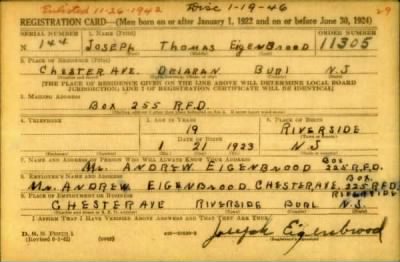 Enlisted 11-26-1942 Disc 1-19-46 29
REGISTRATION CARD—(Men born on or after January 1, 1922 and on or before June 30, 1924)
SERIAL NUMBER 1. NAME (Print) ORDER NUMBER
N 144 JOSEPH THOMAS EIGENBROOD 11305
(First) (Middle) (Last)
2. PLACE OF RESIDENCE (Print)
CHESTER AVE. DELRAN BURL N.J.
[THE PLACE OF RESIDENCE GIVEN ON THE LINE ABOVE WILL DETERMINE LOCAL BOARD
JURISDICTION; LINE 2 OF REGISTRATION CERTIFICATE WILL BE IDENTICAL]
3. MAILING ADDRESS
BOX 255 R.F.D.
4. TELEPHONE 5. AGE IN YEARS 6. PLACE OF BIRTH
19 RIVERSIDE
DATE OF BIRTH
1 21 1923 N.J.
7. NAME AND ADDRESS OF PERSON WHO WILL ALWAYS KNOW YOUR ADDRESS
MR. ANDREW EIGENBROOD BOX 225 R.F.D.
8. EMPLOYER'S NAME AND ADDRESS
MR. ANDREW EIGENBROOD CHESTER AVE. BOX 225 R.F.D.
9. PLACE OF EMPLOYMENT OR BUSINESS RIVERSIDE
CHESTER AVE RIVERSIDE BURL N.J.
I AFFIRM THAT I HAVE VERIFIED ABOVE ANSWERS AND THAT THEY ARE TRUE.
D. S. S. Form 1
Joseph Eigenbrood